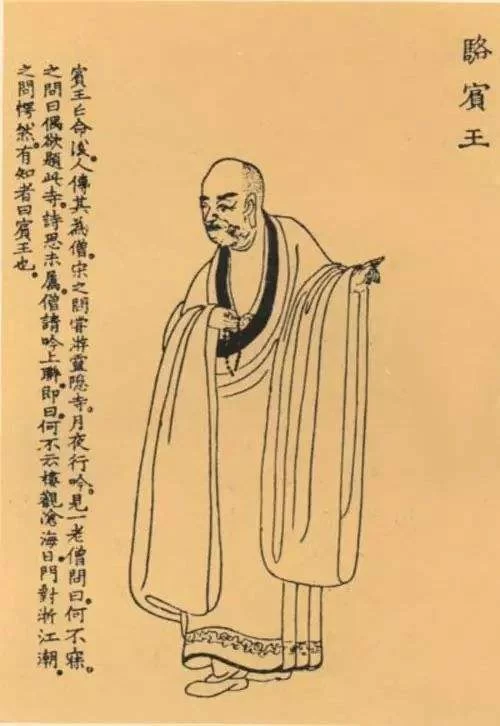 駱賓王
賓王亡命後。人傳其為僧。宋之問嘗游靈隐寺。月夜行吟。見一老僧。問曰。何不寐。
之問曰。偶欲題此寺。詩思未屬。僧請吟上聯。即曰。何不云樓觀滄海日。門對浙江潮。
之問愕然。有知者曰。賓王也。